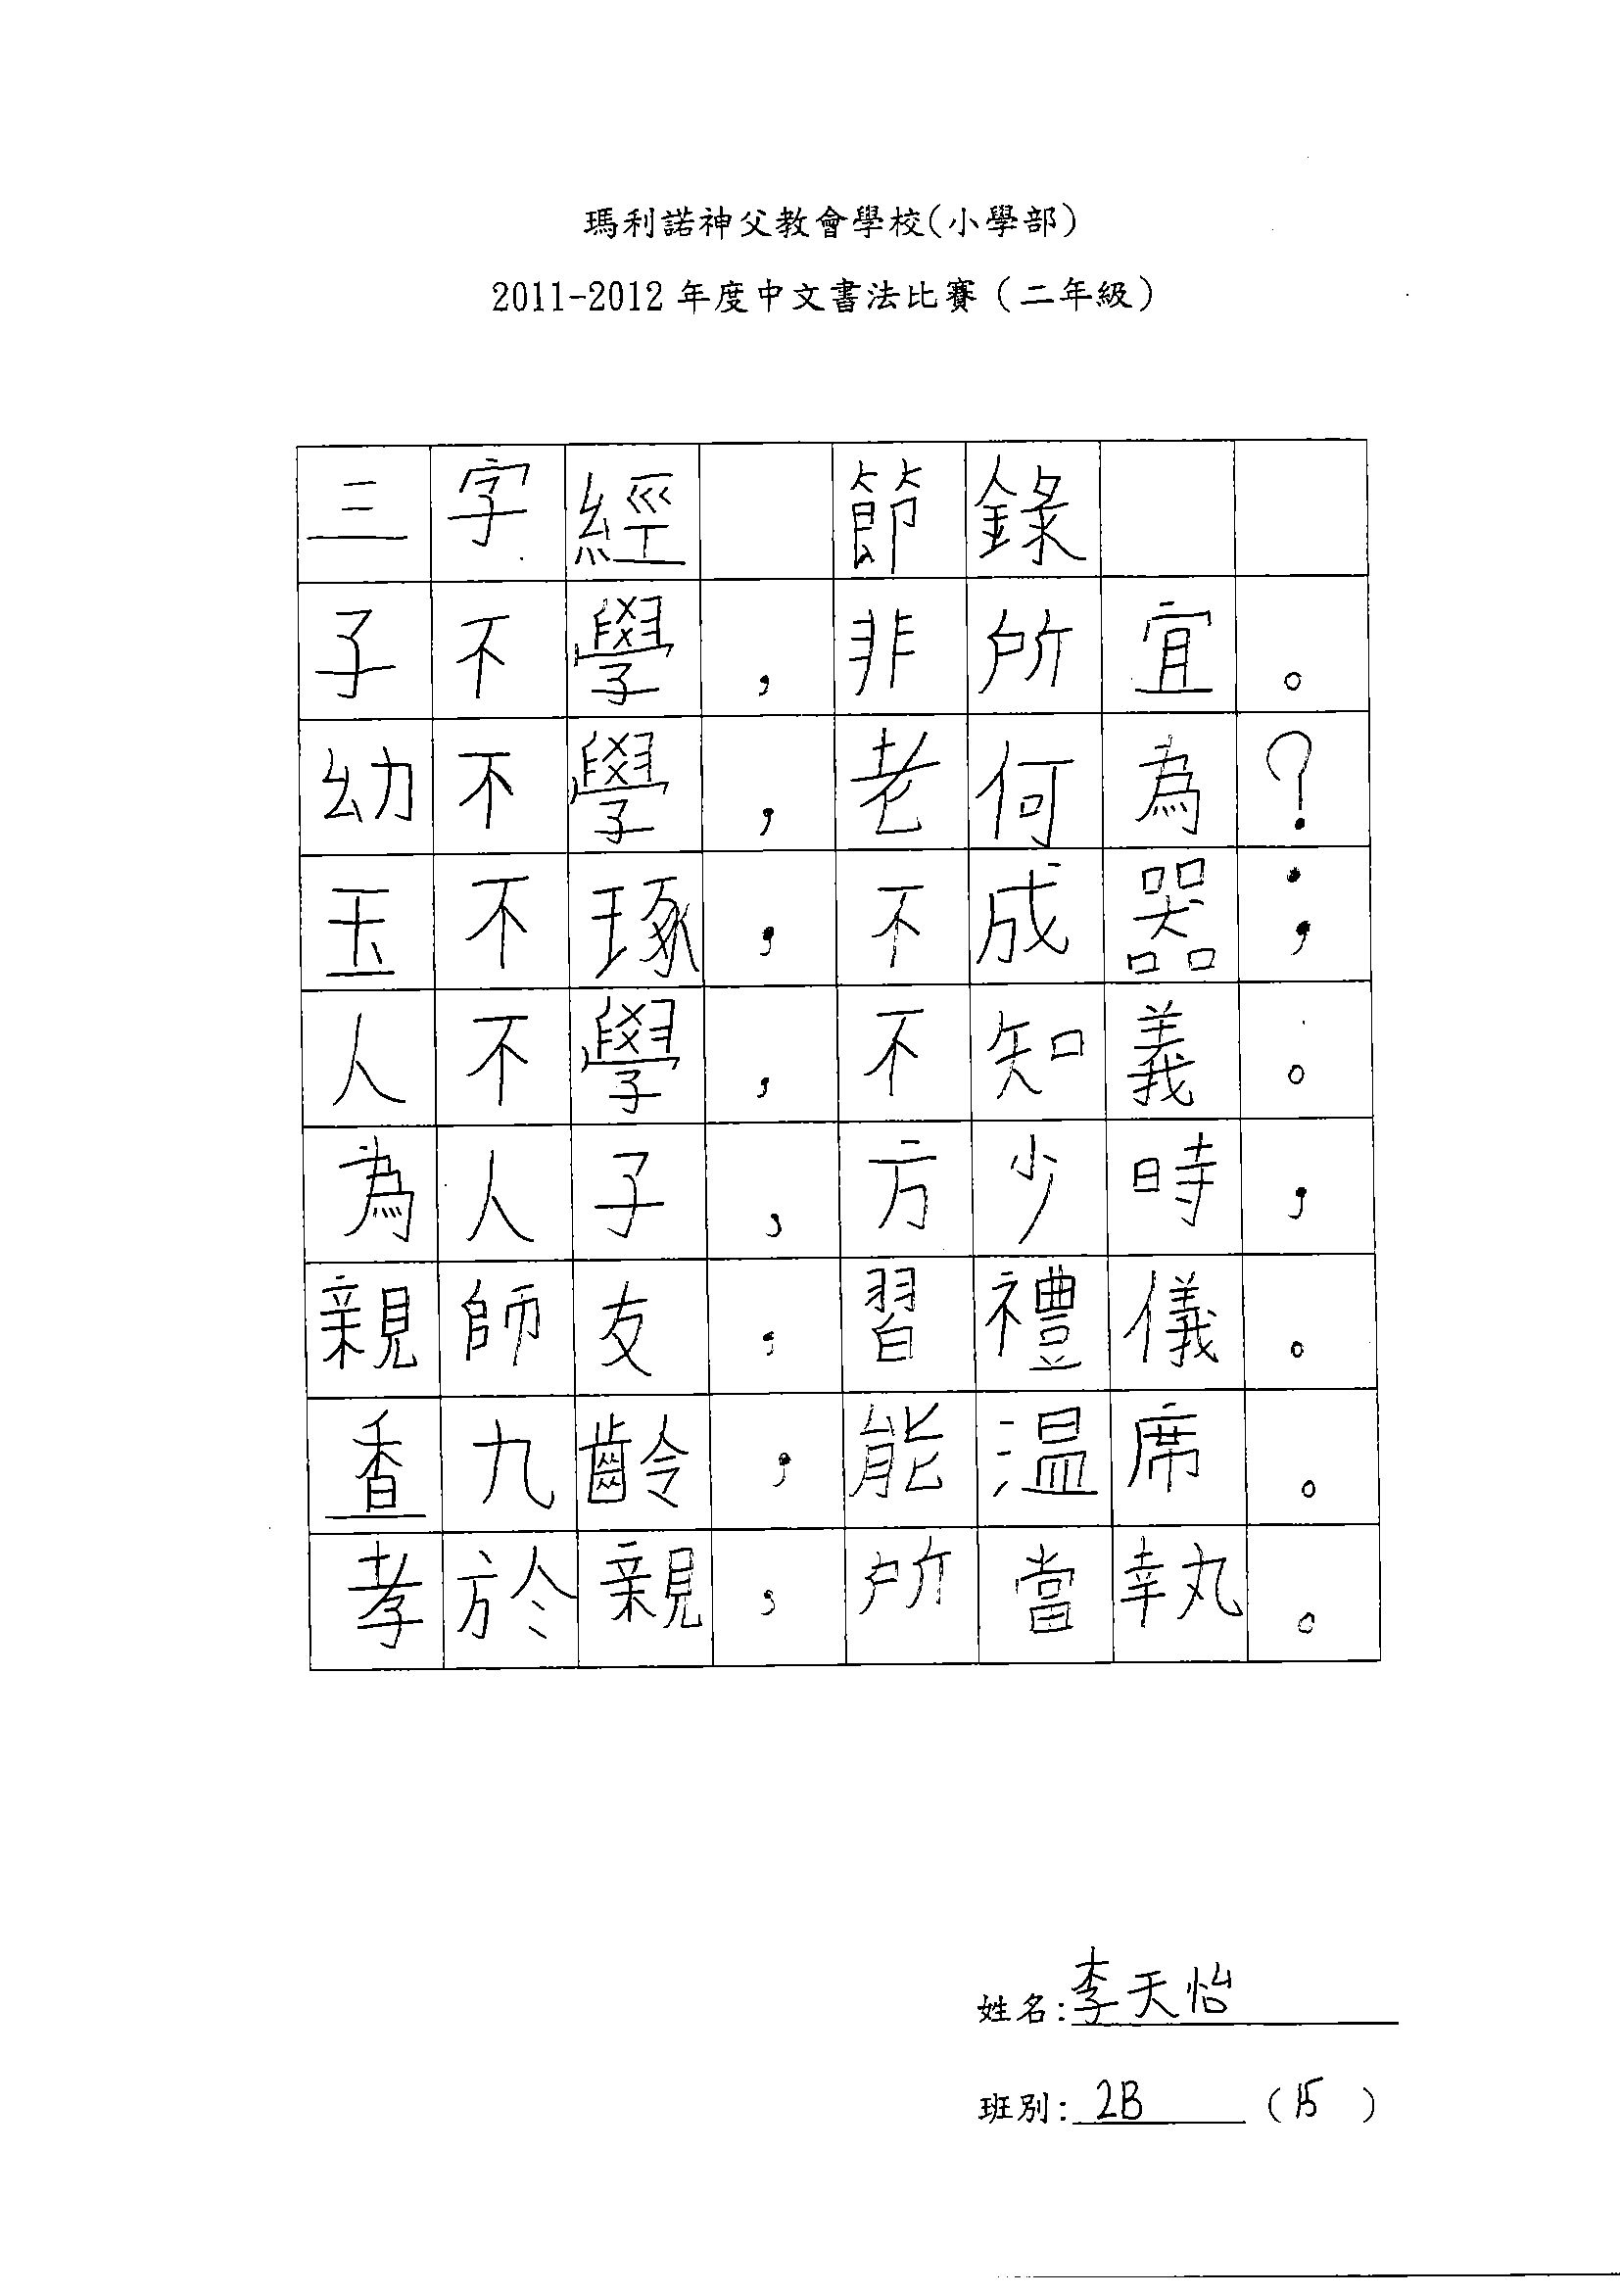 瑪利諾神父教會學校(小學部)
2011-2012 年度中文書法比賽（二年級）
三字經 節錄
子不學，非所宜。
幼不學，老何為？
玉不琢，不成器；
人不學，不知義。
為人子，方少時，
親師友，習禮儀。
香九齡，能温席。
孝於親，所當執。
姓名:李天怡
班別:2B (15)